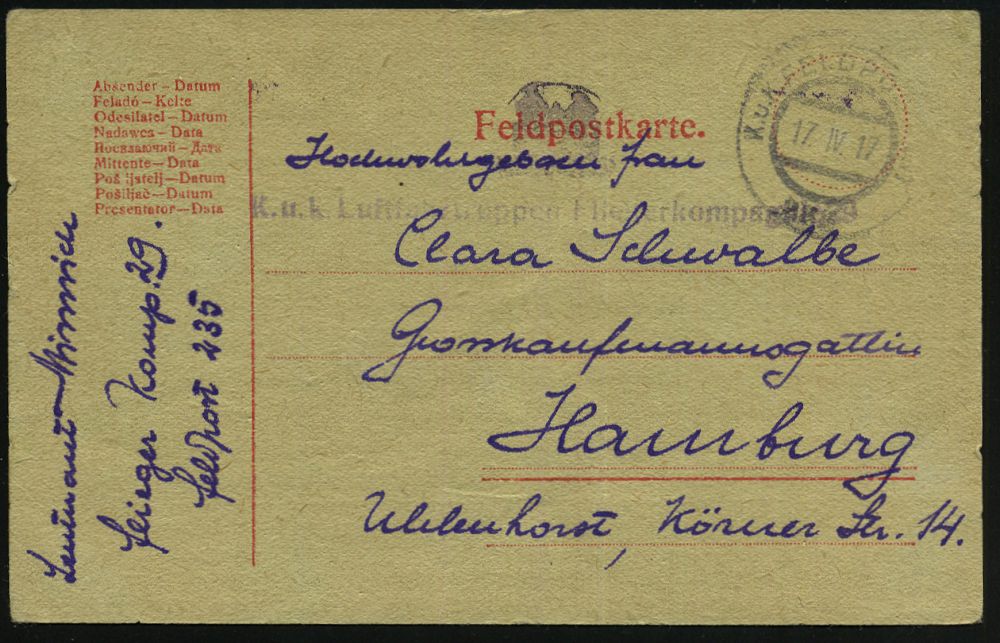 Absender – Datum
Feladó – Kelte
Odesílatel – Datum
Nadawca – Data
Посилаючий – Дата
Mittente – Data
Pošiljatelj – Datum
Pošiljač – Datum
Presentator – Data
Feldpostkarte.
K.u.K. FELDPOST
17. IV. 17
Hochwohlgeboren Frau
K.u.k. Luftfahrtruppen Fliegerkompagnie 29
Clara Schwalbe
Grosskaufmannsgattin
Hamburg
Uhlenhorst, Körner Str. 14.
Flieger Komp. 29.
Feldpost 235